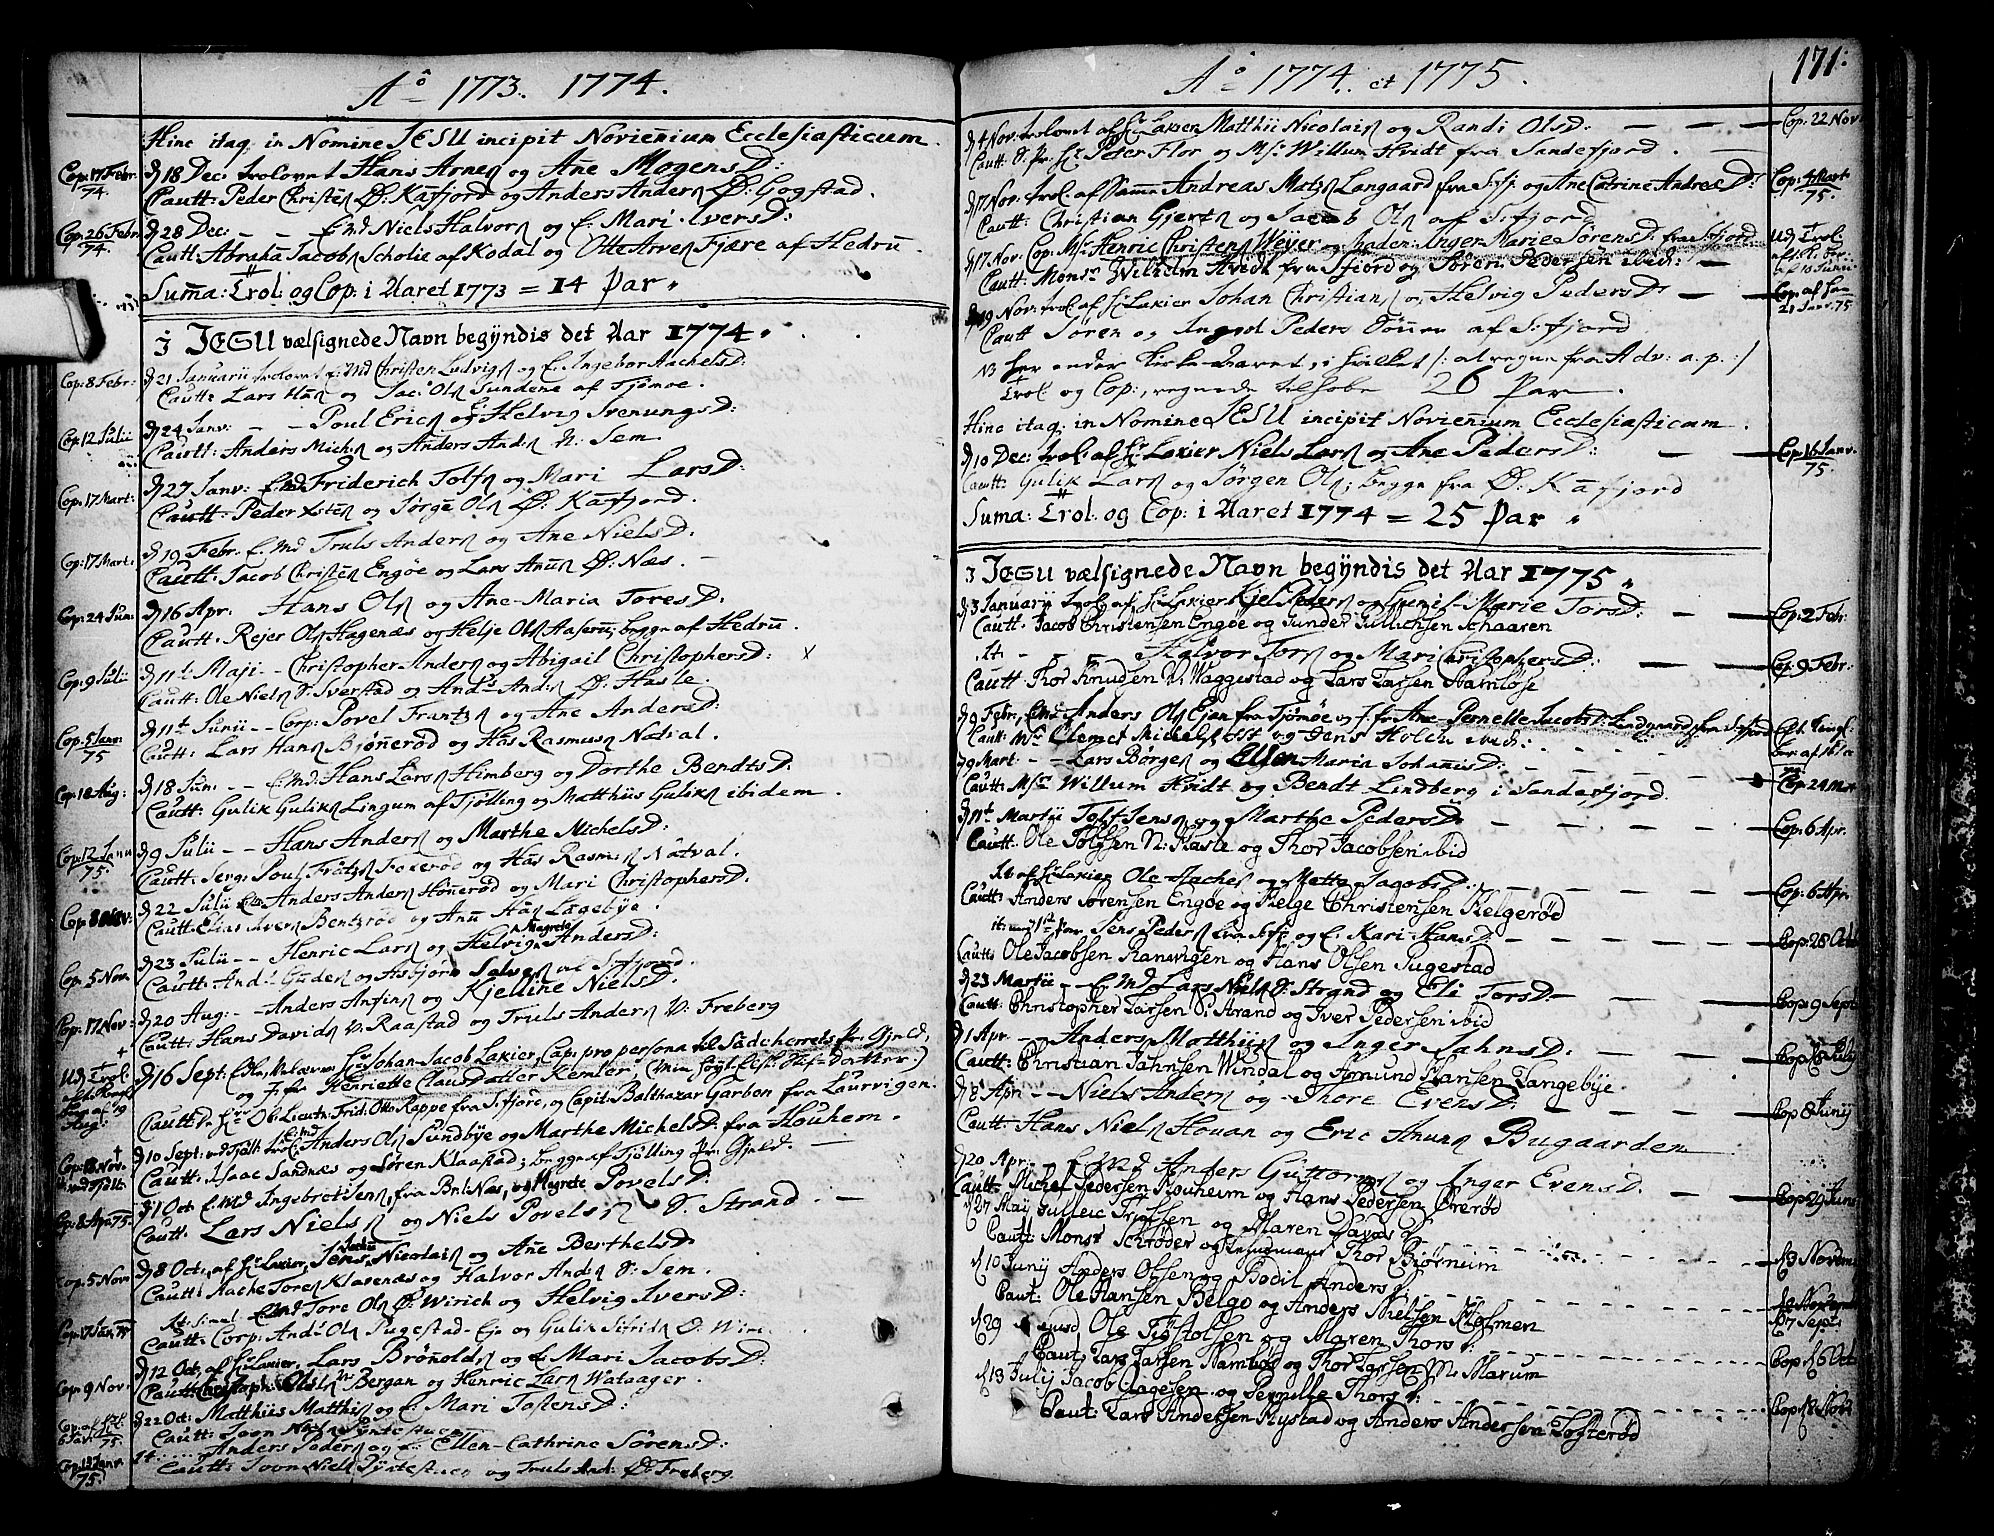 Aº 1773. 1774.
Hinc itaq; in Nomine JESU incipit Noviennium Ecclesiasticum.
Cop: 17 Febr. 74.
d 18 Dec: trolovet Hans Arnes og Ane MogensD:
Cautt: Peder Christens Ø: Kafjord og Anders Anders Ø: Gogstad.
Cop: 26 Febr. 74.
d 28 Dec: — — E.Md Niels Halvors og E: Mari IversD:
Cautt: Abraha Jacobs Scholie af Kodal og Otte Arves Fjære af Hedru
Suma: Trol: og Cop: i Aaret 1773 = 14 Par
J JESU vælsignede Navn begyndis det Aar 1774
Cop: 8 Febr:
d 21 Januarii trolovet E.Md Christen Ludvigs og E: Ingebor AachelsD:
Cautt: Lars Hans og Jac: Ols Sundene af Tjømoe.
Cop: 12 Julii
d 24 Janv: — — Poul Erics og E: Helvig SvenungsD:
Cautt: Anders Mich: og Anders And: N: Sem
Cop: 17 Mart:
d 27 Janv: E.Md Friderich Tolfs og Mari LarsD:
Cautt: Peder Xstens og Jørge Ols Ø: Kafjord.
Cop: 17 Mart:
d 19 Febr. E.Md Truls Anders og Ane NielsD:
Cautt: Jacob Christens Engøe og Lars Anus Ø: Næs. —
Cop: 24 Jun:
d 16 Apr: Hans Ols og Ane-Maria ToresD:
Cautt: Rejer Ols Hagenæs og Helje Ols Aaserum, begge af Hedru.
Cop: 9 Julii
d 11t Maji — Christopher Anders og Abigail ChristophersD: x
Cautt: Ole Niels S. Iverstad og Ands And: Ø: Hasle.
Cop: 5 Janv: 75
d 11t Junii — Corp: Povel Frantzs og Ane AndersD:
Cautt: Lars Hans Bjønnerød og Has Rasmus Natval.
Cop: 18 Aug:
d 18 Jun: — — E.Md: Hans Lars Himberg og Dorthe BendtsD:
Cautt: Gulik Guliks Lingum af Tjølling og Matthiis Guliks ibidem.
Cop: 12 Janv 75.
d 9 Julii — — Hans Anders og Marthe MichelsD:
Cautt: Serg: Poul Frøtzs Foxerød og Has Rasmus Natval.
d 22 Julii Anders Anders Hønnerød og Mari ChristophersD.
Cautt: Elias Ivers Bentzrød og Anu Has Lagebye.
d 23 Julii — — Henric Lars og Helvig Magrete AndersD:
Cop. 5 Nov.
Cautt: And: Gudes og Asbjørn Salves af Sfjord.
Cop: 17 Nov:
d 20 Aug: — Anders Anfins og Kjelline NielsD.
Cautt: Hans Davids V: Raastad og Truls Anders V: Freberg
Ud Trol:
d 16 Sept: Hr Johan Jacob Laxier, Cap: pro persona til Sandeherrets Pr. Gjeld,
og Henriette Claus datter Kemler, (Min Datter.)
Cautt: Ob: Lieutn: Frid: Otto Rappe fra Sfjore, og Capit: Balthazar Garbon fra Laurvigen.
Cop: 18 Nov.
d 10 Sept: E.Md Anders Ols Sundbye og Marthe MichelsD. fra Houhem.
Cautt: Isaac Sandnæs og Søren Klaastad; begge af Tjølling Pr. Gjeld. —
Cop: 8 Apr. 75.
d 1 Oct E.Md Ingebret Jens, fra Brl: Næs, og Magrete PovelsD:
Cautt. Lars Niels og Niels Povels S. Strand. —
Cop. 5 Nov
d 8 Oct. af Hr Laxier, Jens Nicolais og Ane BerthelsD.
Cautt: Aache Tores Klavenæs og Halvor Ands S. Sem.
Cop: 17 Jan 75
It: simul E.Md Tore Ols Ø: Wirich og Helvig IversD:
Cautt: Corp: And: Ols Pugestad
Cop: 9 Nov.
d 12 Oct. af Hr Laxier, Lars Brønolds og E. Mari JacobsD:
Cautt: Christoph: Ols Bergan og Henric Lars Watsager.
d 22 Oct: Matthiis Matths og E: Mari TostensD:
Cautt: Joon Niels Pyntestuen
Cop: 13 Janv: 75.
It: Anders Peders og E. Ellen-Cathrine SørensD:
Cautt: Joon Niels Pyntestuen og Truls And: Ø: Freberg
171:
Aº 1774. et 1775.
d 4 Nov. trolovet af Hr Laxier Matthii Nicolais og Randi OlsD: — — — Cop: 22 Nov
Cautt: S. Pr. Hr Peter Flor og Msr Willum Hvidt fra Sandefjord. —
d 17 Nov: trol. af Samme Andreas Matzs Langaard fra Sfj: og Ane Catrine AndreæD: Cop: 4 Mart 75.
Cautt: Christian Gjerts og Jacob Ols af Sfjord
d 17 Nov: Cop: Msr Henric Christens Weyer og Maden: Inger Marie SørensD: fra Sfjord Ud Trol:
Cautt: Monsr Wilhelm Hvidt fra Sfjord og Søren Pedersen ibid: —
d 19 Nov: trol af Hr Laxier Johan Christians og Helvig PedersD — — Cop: 21 Janv: 75
Cautt Søren og Inged Peders Tønner af Sfjord
NB her ender Kirke-Aaret, i hvilket /: at regne fra Adv: a. p. :/
Trol og Cop:, regnede tilhobe 26 Par.
Hinc itaq: in Nomine JESU incipit Noviennium Ecclesiasticum.
d 10 Dec: trol: af Hr Laxier Niels Lars og Ane PedersD: — — Cop: 16 Janv. 75.
Cautt: Gulik Lars og Jørgen Ols; begge fra Ø: Kafjord
Suma: Trol: og Cop: i Aaret 1774 = 25 Par
J JESU vælsignede Navn begyndis det Aar 1775
d 3 Januarii trol: af Hr Laxier Kjel Peders og Gunil-Marie TorsD: — — Cop: 2 Febr:
Cautt. Jacob Christensen Engøe og Gunder Gullichsen Schaaren
It: — — Halvor Tors og Mari ChristophersD: — — Cop. 9 Febr:
Cautt: Thor Knudsen V: Waggestad og Lars Larsen Namløse
d 9 Febr. E.Md Anders Ols Ejan fra Tjømøe og Jfr Ane Pernelle JacobsD: Lindgaard, fra Sfjord
Cautt: Msr Clemet Michels Ist og Jens Holch ibid:
d 9 Mart — — Lars Børges og Ellen Maria JohannisD: Cop 24 Mart
Cautt: Msr Willum Hvidt og Bendt Lindberg i Sandefjord.
d 11t Martii Tolf Jens og Marthe PedersD: Cop: 6 Apr.
Cautt: Ole Tolfsen N: Hasle og Thor Jacobsen ibid
It af Hr Laxier Ole Haches og Mette JacobsD: Cop: 6 Apr.
Cautt: Anders Sørensen Engøe og Helge Christensen Helgerød
Jens Peders fra Sfj: og E. Kari HansD: Cop: 28 Oct
Cautt: Ole Jacobsen Ranvigen og Hans Olsen Pugestad
d 23 Martii — E.Md Lars Niels S. Strand og Eli TorsD — Cop: 9 Sept
Cautt: Christopher Larsen S: Strand og Iver Pedersen ibid
d 1 Apr. — Anders Matthiis og Inger JahnsD. — Cop: 6 July
Cautt: Christian Jahnsen Windal og Amund Hansen Langebye
d 8 Apr — — Niels Anders og Thore EvensD: — Cop 8 Junij
Cautt: Hans Niels Hovan og Eric Anuns Bugaarden
d 20 Apr: — E.Md Anders Guttorms og Inger EvensD. — Cop: 29 Juni
Cautt: Michel Pedersen Houheim og Hans Pedersen Ørerød
d 27 May Gulleic Trolfsen og Maren Davids D.
Caut: Monsr Schrøder og Thor Bjørnum d 3 Novem
d 10 Junij Anders Olsen og Bodil Anders D.
Caut: Ole Hansen Belgo og Anders Nielsen Holmen
d 29 Ole Tistolsen og Maren Thors D. d 7 Sept:
Caut: Lars Larsen Namløs og Thor Larsen M: Marum Cop d 6 Oct
d 13 July Jacob Aagesen og Pernille Thors D.
Caut: Lars Andersen Nystad og Anders Andersen Lofterød Cop d 18 Nov